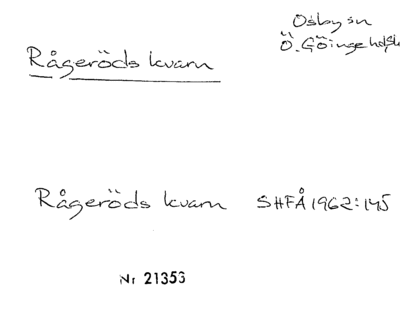 Osby sn
Ö. Göinge hd, Sk
Rågeröds kvarn
Rågeröds kvarn SHFÅ 1962:145
Nr 21353